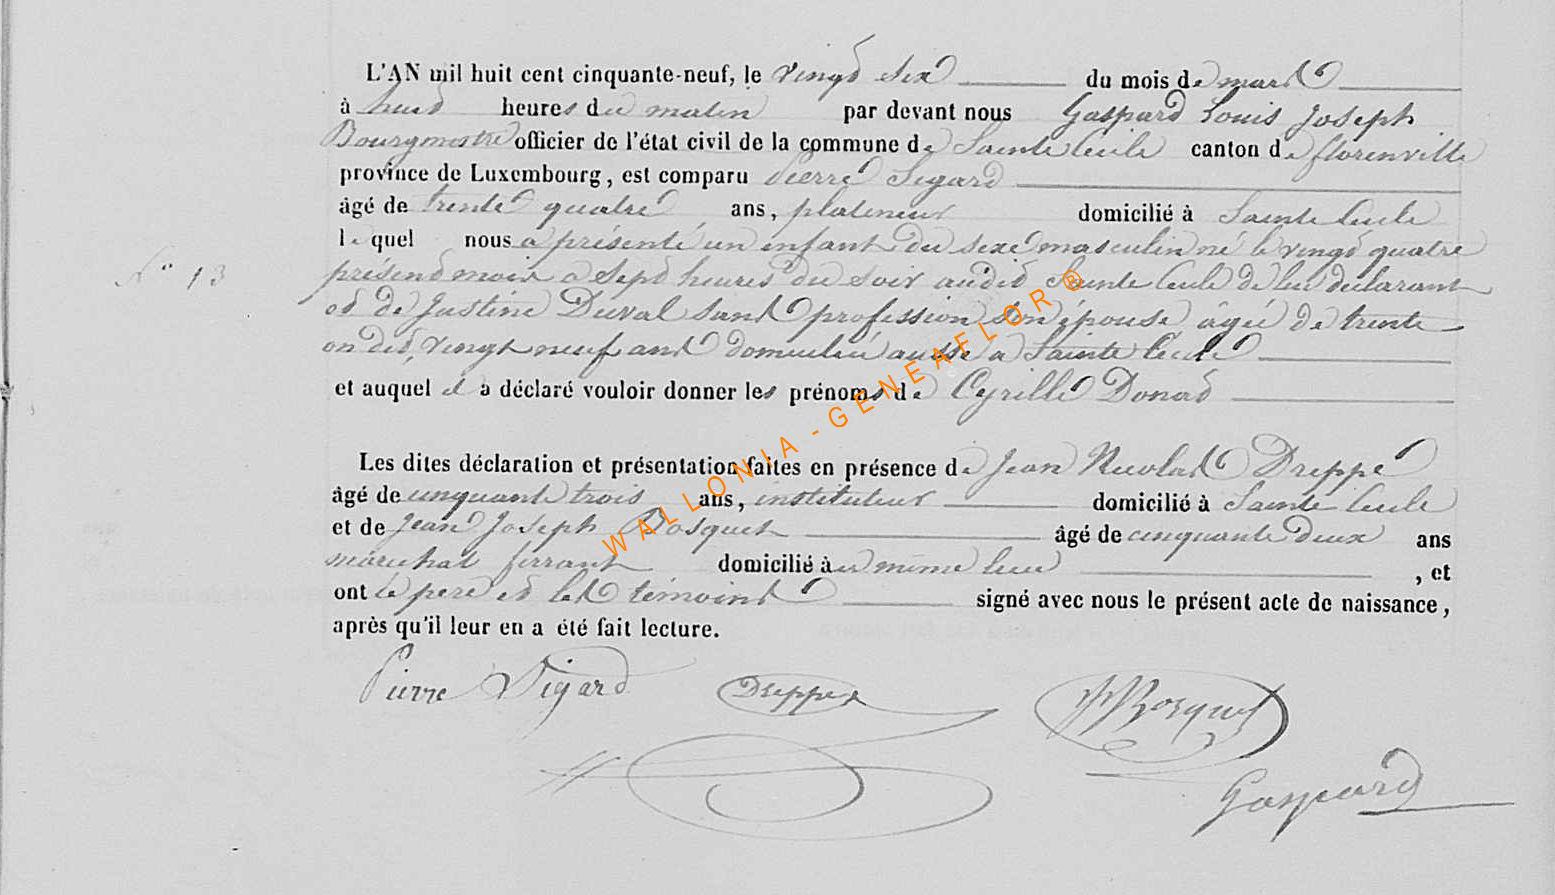 L'AN mil huit cent cinquante-neuf, le vingt six du mois de mars
à huit heures du matin par devant nous Gaspard Louis Joseph
Bourgmestre officier de l'état civil de la commune de Sainte Cécile canton de florenville
province de Luxembourg, est comparu Pierre Sigard
âgé de trente quatre ans, plafoneur domicilié à Sainte Cécile
le quel nous a présenté un enfant du sexe masculin né le vingt quatre
N° 13
présent mois à sept heures du soir audit Sainte Cécile de lui déclarant
et de Justine Duval sans profession son épouse âgée de trente
vingt neuf ans domiciliée aussi à Sainte Cécile
et auquel il a déclaré vouloir donner les prénoms de Cyrille Donat
Les dites déclaration et présentation faites en présence de Jean Nicolas Dreppe
âgé de cinquante trois ans, instituteur domicilié à Sainte Cécile
et de Jean Joseph Bosquet âgé de cinquante deux ans
maréchal ferrant domicilié au même lieu , et
ont le père et les témoins signé avec nous le présent acte de naissance,
après qu'il leur en a été fait lecture.
Pierre Sigard Dreppe JJBosquet
Gaspard
WALLONIA-GENEAFLOR®